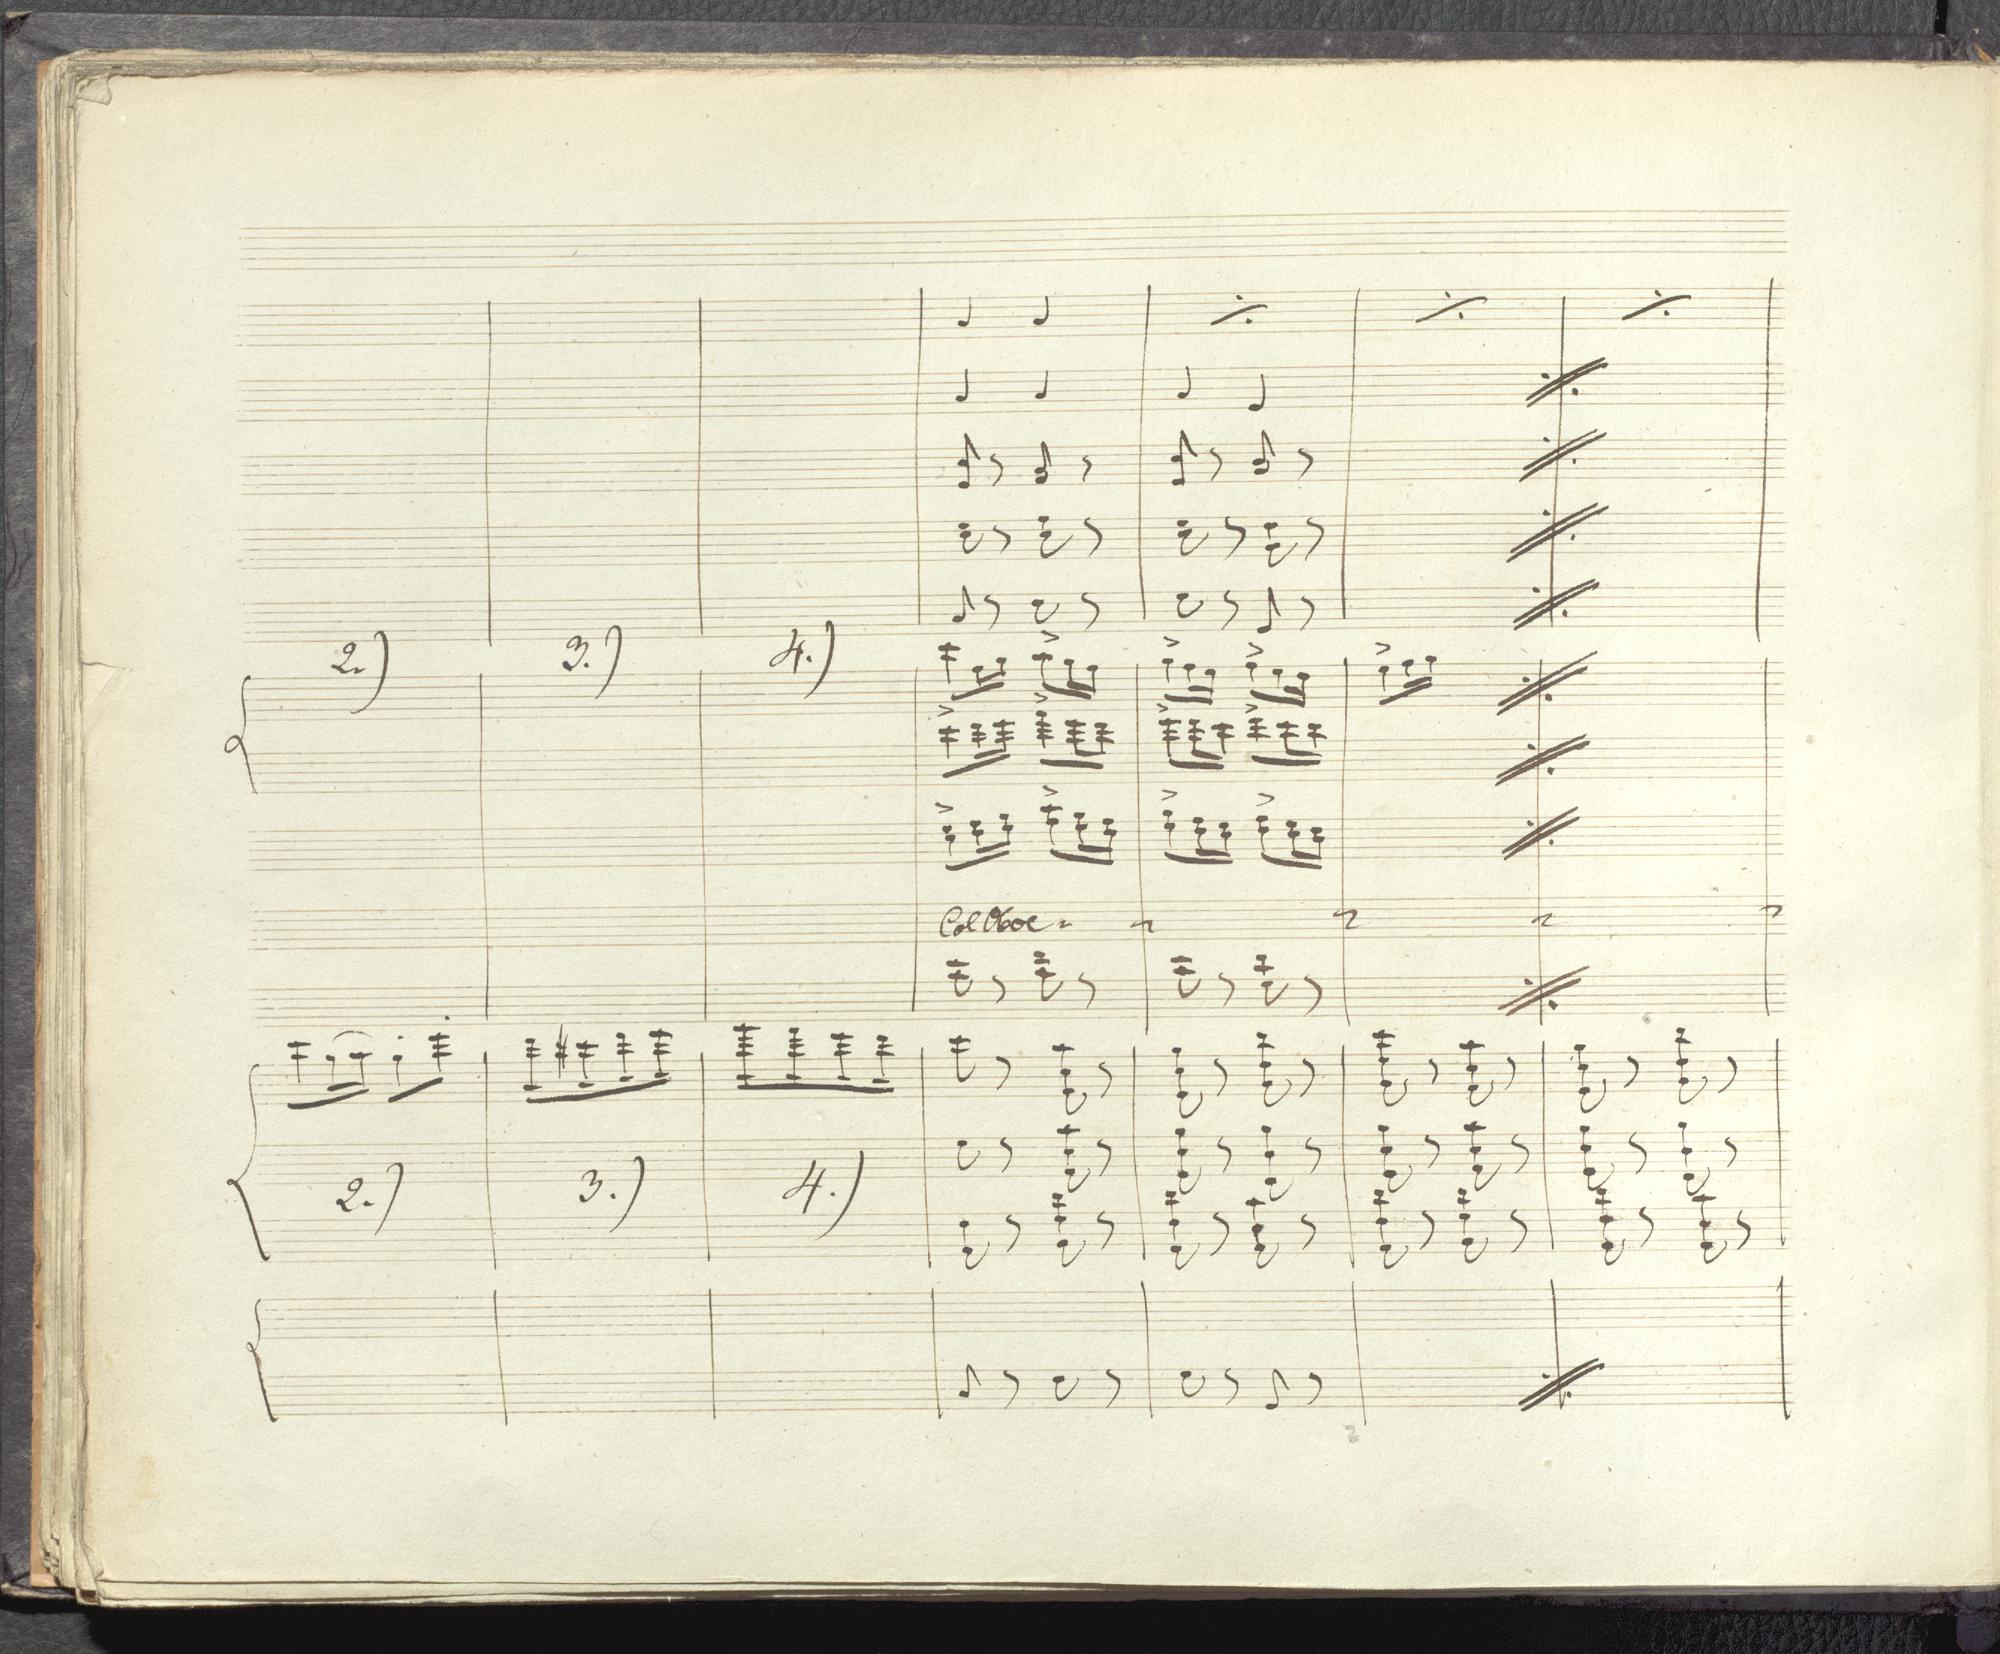 2.) 3.) 4.)
Col Oboe
2.) 3.) 4.)